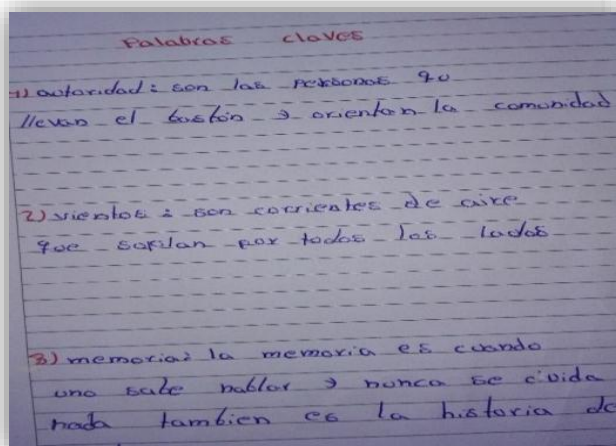 Palabras claves
1) autoridad: son las personas qu
llevan el bastón y orientan la comunidad
2) vientos: son corrientes de aire
que soplan por todos los lados
3) memoria: la memoria es cuando
uno sabe hablar y nunca se
nada tambien es la historia de